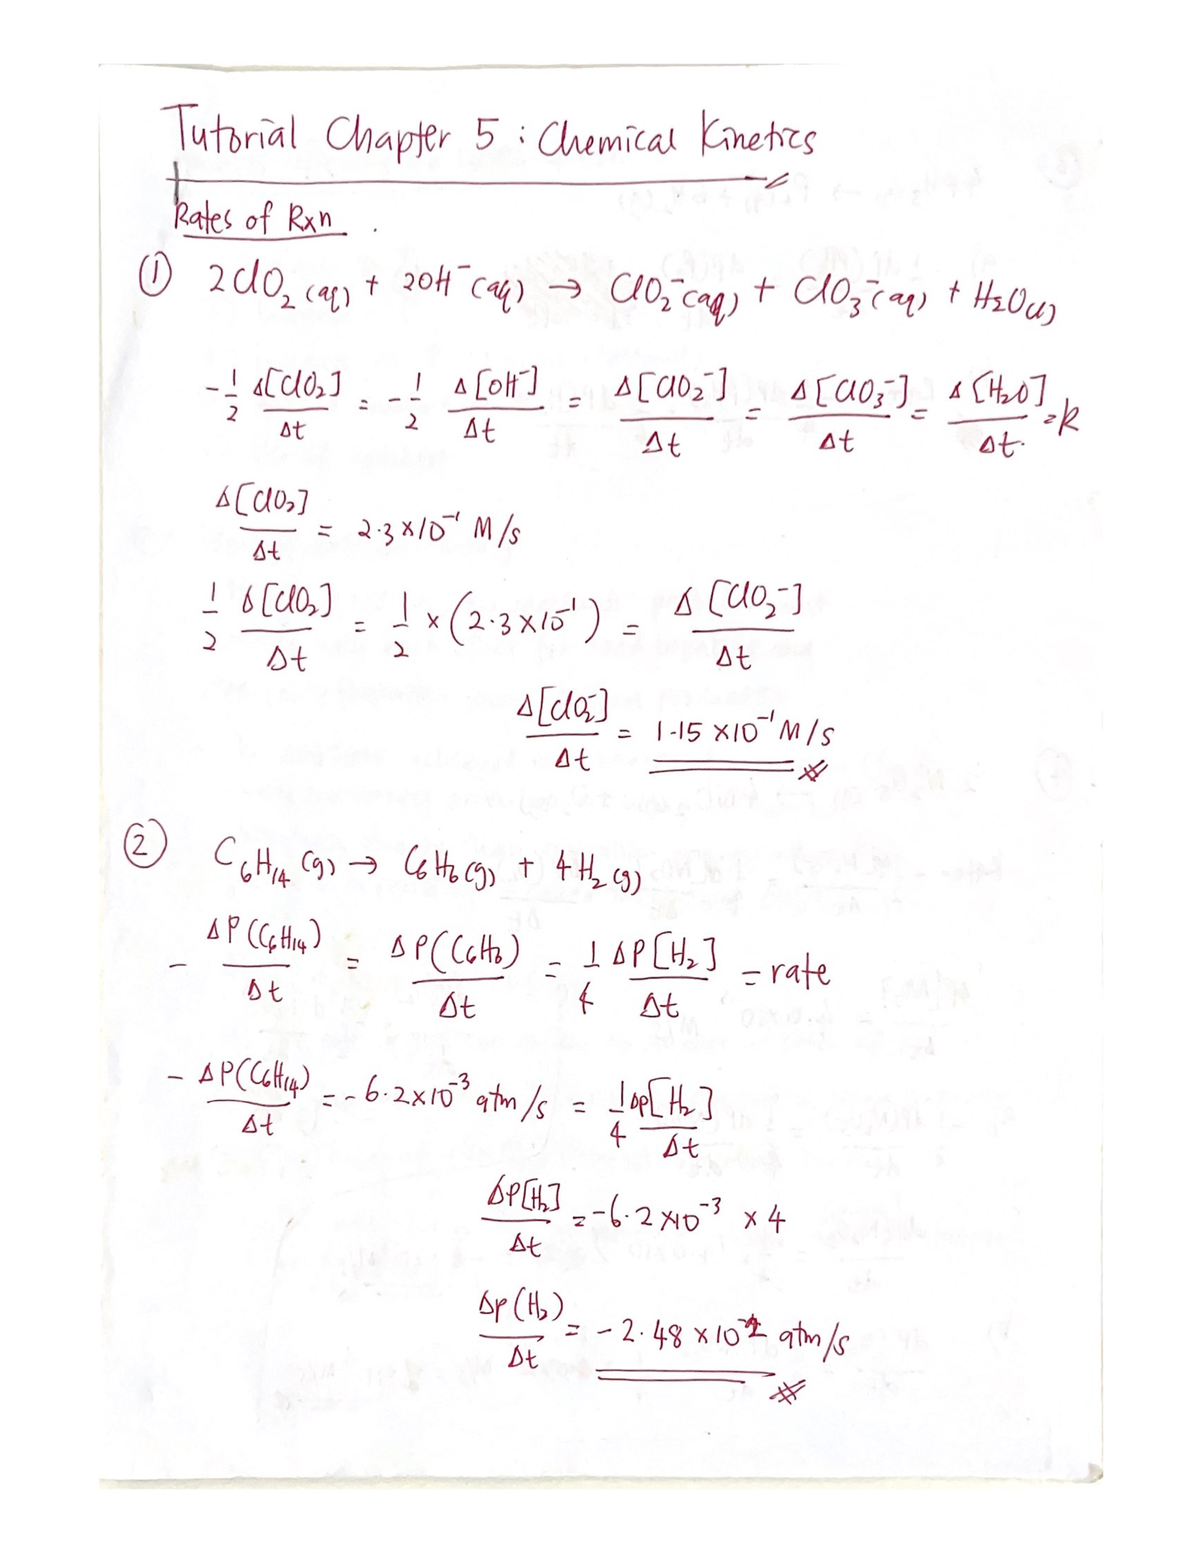 Tutorial Chapter 5 : Chemical Kinetics
Rates of Rxn .
① 2ClO₂ (aq) + 2OH⁻ (aq) → ClO₂⁻ (aq) + ClO₃⁻ (aq) + H₂O (l)
- 1/2 Δ[ClO₂]/Δt = - 1/2 Δ[OH⁻]/Δt = Δ[ClO₂⁻]/Δt = Δ[ClO₃⁻]/Δt = Δ[H₂O]/Δt. = R
Δ[ClO₂]/Δt = 2.3 × 10⁻¹ M/s
1/2 Δ[ClO₂]/Δt = 1/2 × (2.3 × 10⁻¹) = Δ[ClO₂⁻]/Δt
Δ[ClO₂⁻]/Δt = 1.15 × 10⁻¹ M/s
② C₆H₁₄ (g) → C₆H₆ (g) + 4H₂ (g)
- ΔP(C₆H₁₄)/Δt = ΔP(C₆H₆)/Δt = 1/4 ΔP[H₂]/Δt = rate
- ΔP(C₆H₁₄)/Δt = - 6.2 × 10⁻³ atm/s = 1/4 ΔP[H₂]/Δt
ΔP[H₂]/Δt = - 6.2 × 10⁻³ × 4
ΔP(H₂)/Δt = - 2.48 × 10⁻² atm/s